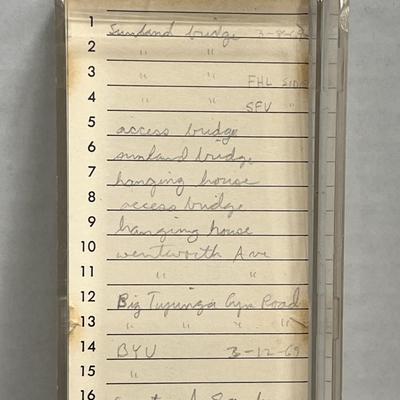 1 Sunland bridge 3-8-69
2 " "
3 " " FHL SIDE
4 " " SFV "
5 access bridge
6 sunland bridge
7 hanging house
8 access bridge
9 hanging house
10 wentworth Ave
11 " "
12 Big Tujunga Cyn Road
13 " " " "
14 BYU 3-12-69
15 "
16